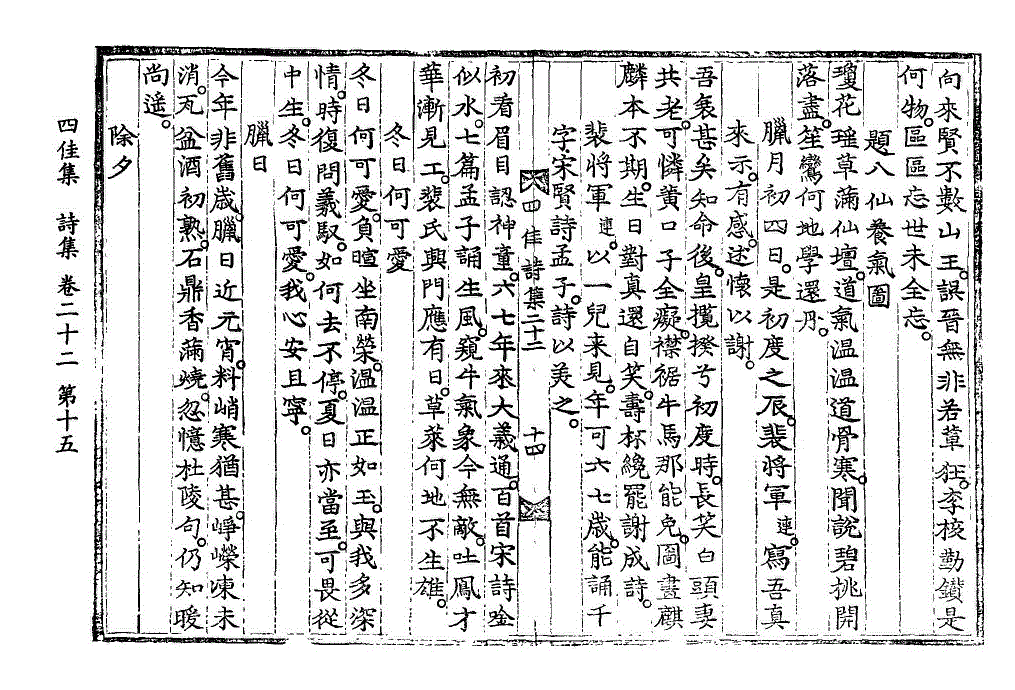 向來賢不數山王。誤晉無非若輩狂。李核勤鑽是
何物。區區忘世未全忘。
題八仙養氣圖
瓊花瑤草滿仙壇。道氣温温道骨寒。聞說碧桃開
落盡。笙鸞何地學還丹。
臘月初四日。是初度之辰。裴將軍 連。寫吾眞
來示。有感。述懷以謝。
吾衰甚矣知命後。皇攬揆兮初度時。長笑白頭妻
共老。可憐黃口子全癡。襟裾牛馬那能免。圖畫麒
麟本不期。生日對真還自笑。壽杯纔罷謝成詩。
裴將軍 連。以一兒来見。年可六七歲。能誦千
字・宋賢詩・孟子。詩以美之。
四佳詩集二十二 十四
初看眉目認神童。六七年來大義通。百首宋詩唫
似水。七篇孟子誦生風。窺牛氣象今無敵。吐鳳才
華漸見工。裴氏興門應有日。草萊何地不生雄。
冬日何可愛
冬日何可愛。負暄坐南榮。温温正如玉。與我多深
情。時復問羲馭。如何去不停。夏日亦當至。可畏從
中生。冬日何可愛。我心安且寧。
臘日
今年非舊歲。臘日近元宵。料峭寒猶甚。崢嶸凍未
消。瓦盆酒初熟。石鼎香滿燒。忽憶杜陵句。仍知暖
尚遙。
除夕
四佳集 詩集 卷二十二 第十五